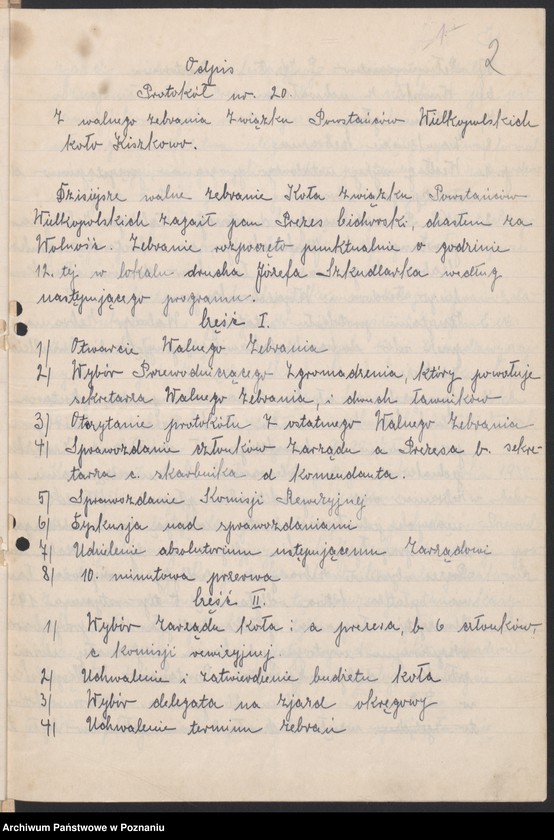 2
Odpis
Protokół nr. 20.
Z walnego zebrania Związku Powstańców Wielkopolskich
koło Kiszkowo.
Dzisiejsze walne zebranie Koła Związku Powstańców
Wielkopolskich zagaił pan Prezes Cichorski, chasłem za
Wolność. Zebranie rozpoczęto punktualnie o godzinie
12. tej w lokalu drucha Józefa Szkudlarka według
następującego programu.
Część I.
1/ Otwarcie Walnego Zebrania
2/ Wybór Przewodniczącego Zgromadzenia, który powołuje
sekretarza Walnego Zebrania, i dwuch ławników
3/ Otczytanie protokółu z ostatnego Walnego Zebrania
4/ Sprawozdanie członków Zarządu a Prezesa b. sekre-
tarza c. skarbnika d komendanta.
5/ Sprawozdanie Komisji Rewizyjnej
6/ Dyskusja nad sprawozdaniami
7/ Udzielenie absolutorium ustępującemu Zarządowi
8/ 10. minutowa przerwa
Część II.
1/ Wybór Zarządu koła: a prezesa, b 6 członków,
c komisji rewizyjnej
2/ Uchwalenie i zatwierdzenie budżetu koła
3/ Wybór delegata na zjazd okręgowy
4/ Uchwalenie terminu zebrań
Archiwum Państwowe w Poznaniu